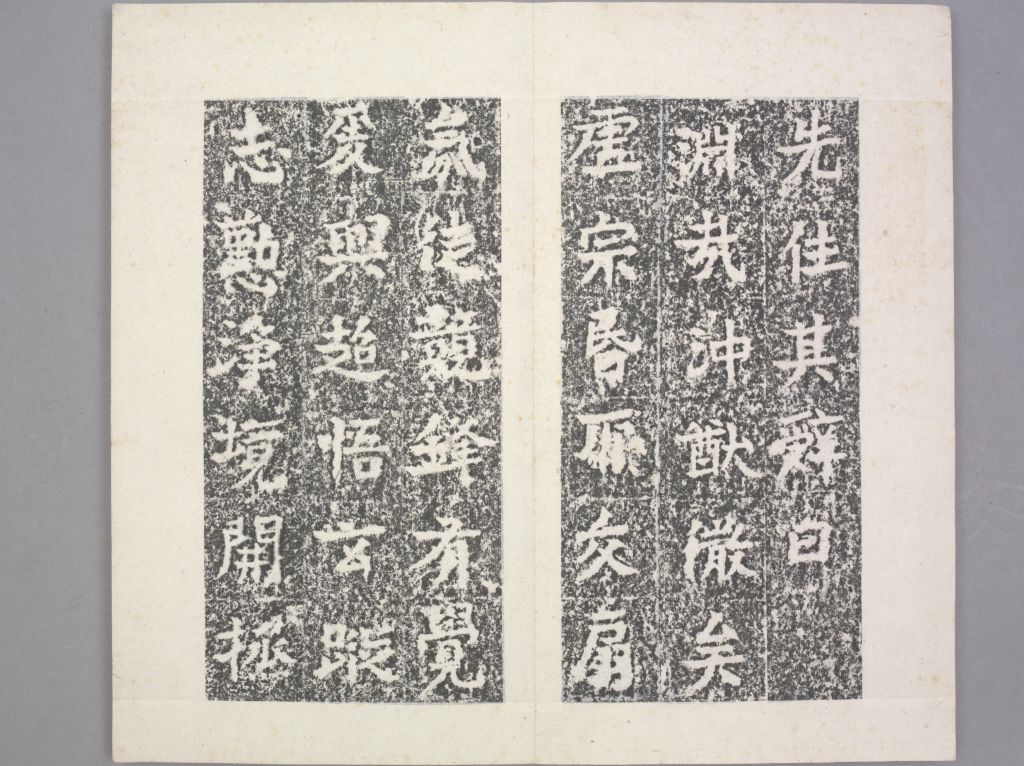 先住其辭曰
淵哉沖猷微矣
虛宗昏交扇
徒競鋒有覺
爰興超悟玄蹤
志懃淨境開極